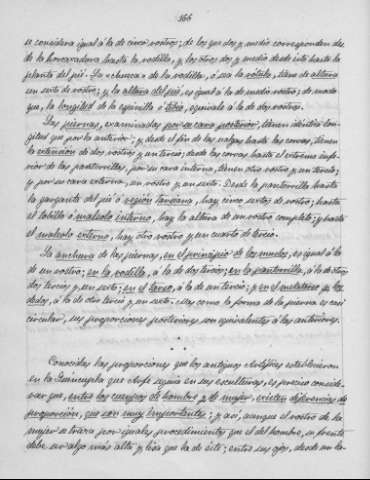 166
se considera igual á la de cinco rostros; de los que dos y medio corresponden des-
de la horcajadura hasta la rodilla, y los otros dos y medio desde ésta hasta la
planta del pié. La «chueca» de la rodilla, ó sea la rótula, tiene de altura
un sexto de rostro; y la altura del pié, es igual á la de medio rostro; de modo
que, la longitud de la espinilla ó tibia, equivale á la de dos rostros.
Las piernas, examinadas por su cara posterior, tienen idéntica lon-
gitud que por la anterior; y desde el fin de las nalgas hasta las corvas, tienen
la extensión de dos rostros y un tercio; desde las corvas hasta el extremo infe-
rior de las pantorrillas, por su cara interna, tienen otro rostro y un tercio;
y por su cara externa, un rostro y un sexto. Desde la pantorrilla hasta
la garganta del pié ó región tarsiana, hay cinco sextos de rostro; hasta
el tobillo ó maleolo interno, hay la altura de un rostro completo; y hasta
el maleolo externo, hay otro rostro y un cuarto de tercio.
La anchura de las piernas, en el principio de los muslos, es igual á la
de un rostro; en la rodilla, á la de dos tercios; en la pantorrilla, á la de otros
dos tercios y un sexto; en el tarso, á la de un tercio; y en el metatarso y los
dedos, á la de otro tercio y un sexto. Mas como la forma de la pierna es casi
circular, sus proporciones posteriores son equivalentes á las anteriores.
Conocidas las proporciones que los antiguos Artífices establecieron
en la que Arfe seguía en sus esculturas, es preciso conside-
rar que, entre los cuerpos de hombre y de mujer, existen diferencias de
proporción, que son muy importantes; y así, aunque el rostro de la
mujer se traza por iguales procedimientos que el del hombre, su frente
debe ser algo más alta y lisa que la de éste; entre sus ojos, desde un la-